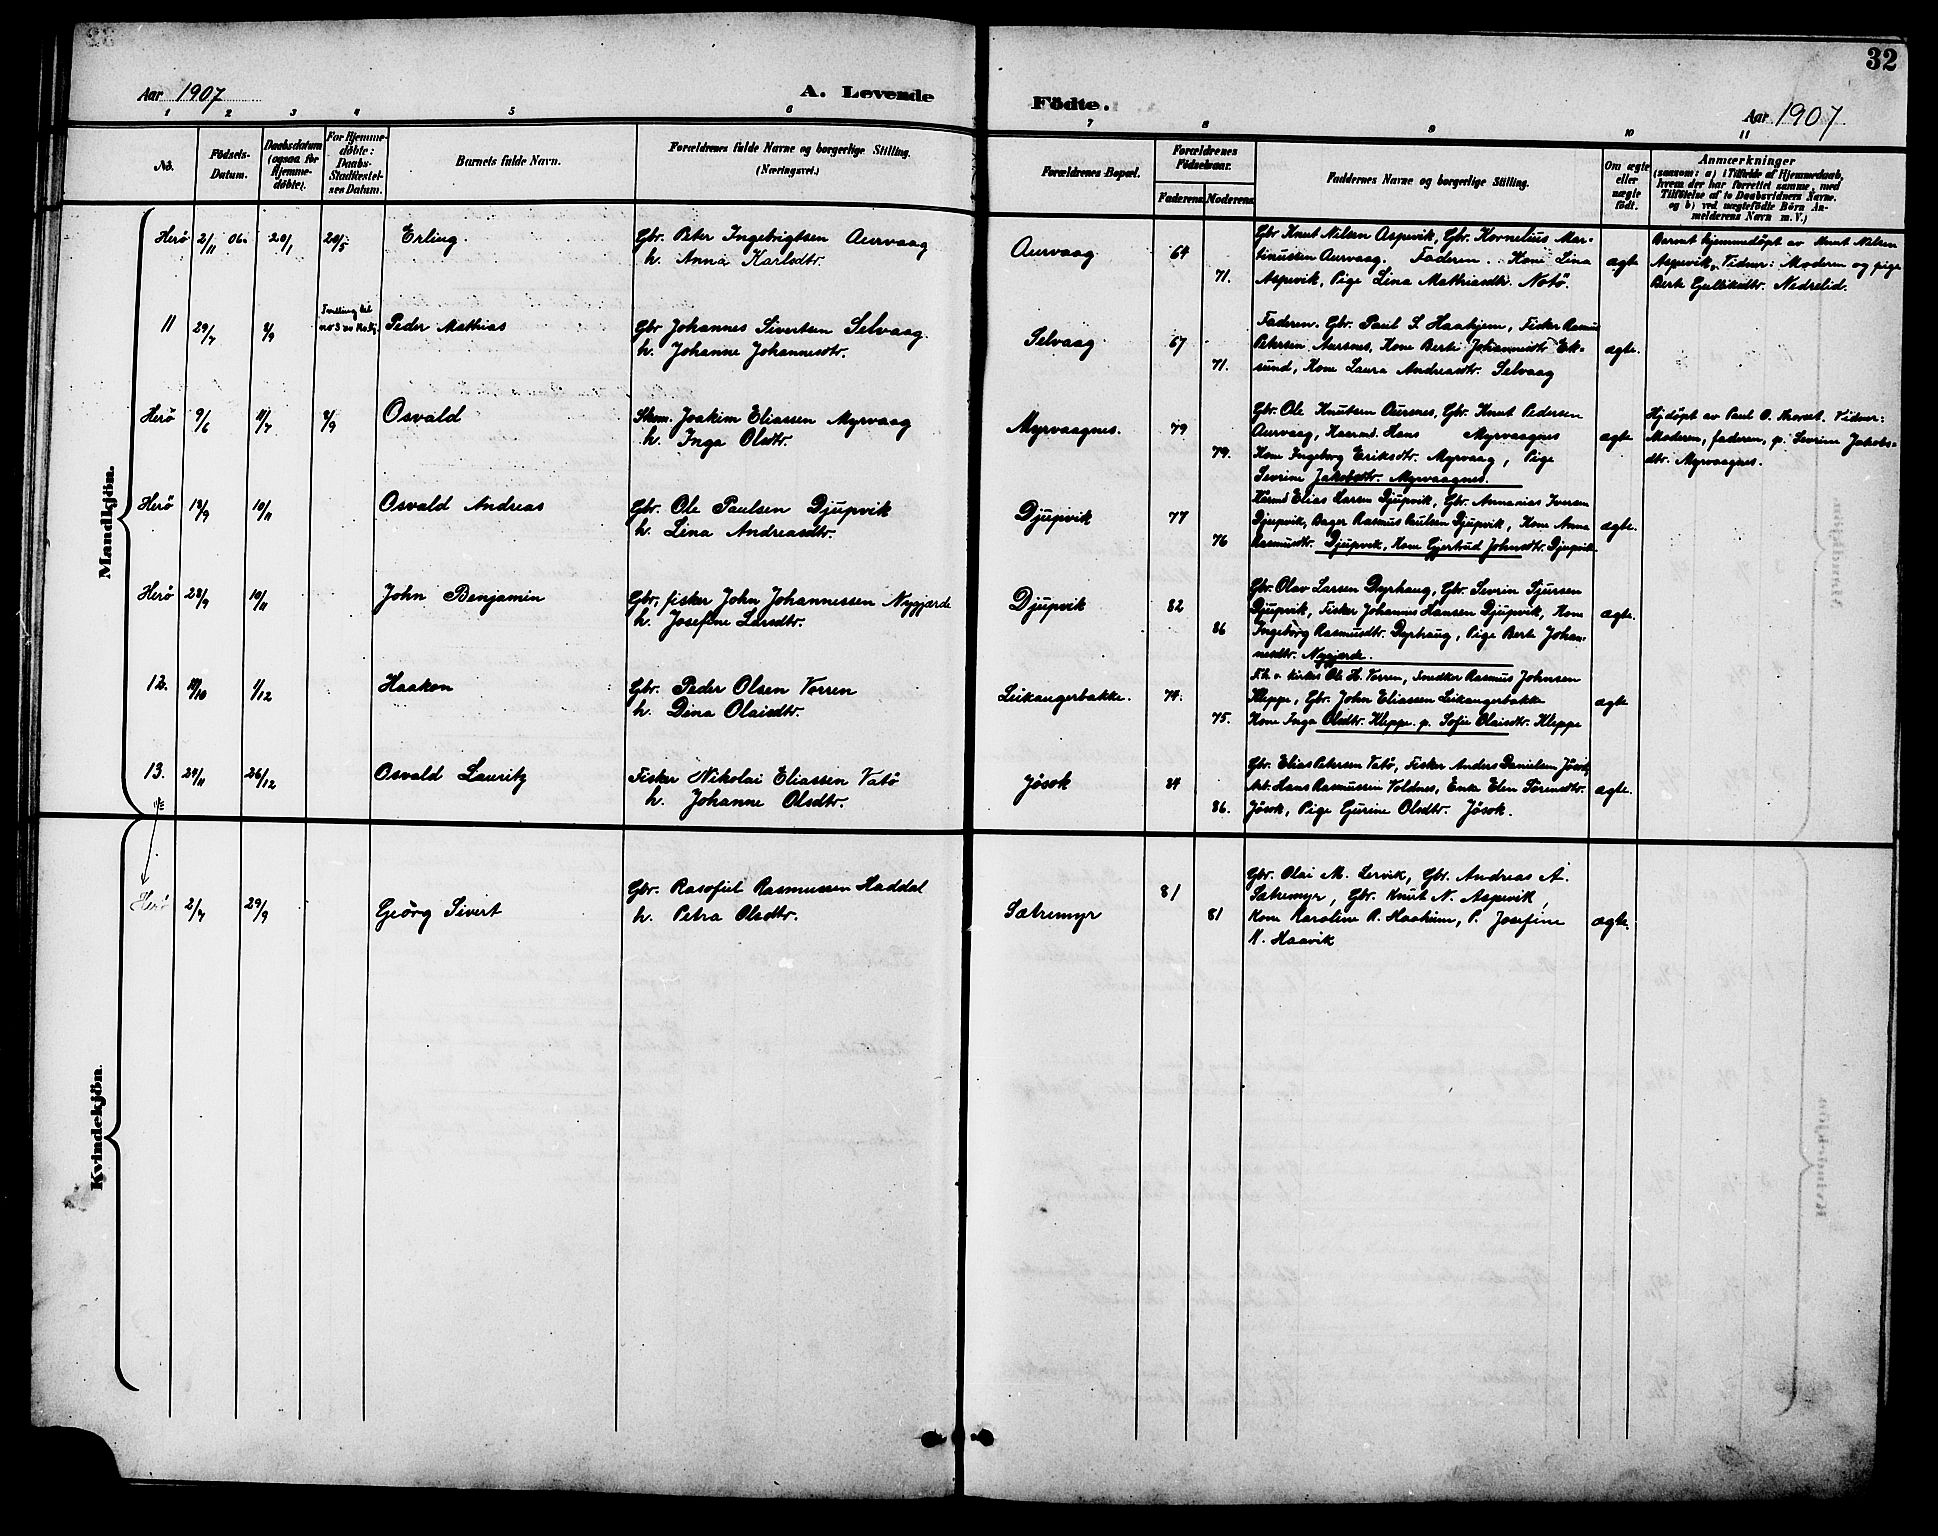 32
Aar 1907
A. Levende
Födte.
Aar 1907.
1 2 3 4 5 6 7 8 9 10 11
No.
Födsels-
Datum.
Daabsdatum
(ogsaa for
Hjemme-
döbte).
For Hjemme-
döbte:
Daabs-
Stadfæstel-
sens Datum.
Barnets fulde Navn.
Forældrenes fulde Navne og borgerlige Stilling.
(Næringsvei.)
Forældrenes Bopæl.
Forældrenes
Födselsaar.
Faderens
Moderens
Faddernes Navne og borgerlige Stilling.
Om ægte
eller
uægte
födt.
Anmærkninger
(saasom: a) i Tilfælde af Hjemmedaab,
hvem der har forrettet samme, med
Tilföielse af to Daabsvidners Navne.
og b) ved uægtefödte Börn An-
melderens Navn m. V.)
Mandkjön.
Herö 2/11 06. 20/1 20/5 Erling.
Gbr. Peter Ingebrigtsen Aurvaag
h. Anna Karlsdtr.
Aurvaag 64
71.
Gbr Knut Nilsen Aspevik, Gbr. Kornelius Mar-
tinussen Aurvaag. Faderen. Kone Lina
Aspevik, Pige Lina Mathiasdtr. Notö.
ægte
Barnet hjemmedöpt av Knut Nilsen
Aspevik. Vidner: Moderen og pige
Berte Gulliksdtr. Nedrelid.
11 29/7 8/9
Peder Mathias
Gbr Johannes Sivertsen Selvaag
h. Johanne Johannesdtr.
Selvaag 67
71.
Faderen. Gbr. Paul S. Haahjem, Fisker Rasmus
Petersen Aursnes, Kone Berte Johannesdtr Ek-
sund, Kone Laura Andreasdtr. Selvaag
ægte.
Herö 9/6 11/7 8/9 Osvald
Skom. Joakim Eliassen Myrvaag
h. Inga Olsdtr.
Myrvaagnes. 79
79.
Gbr. Ole Knutsen Aursnes, Gbr. Knut Pedersen
Aurvaag, Haarmd. Hans Myrvaagnes
Kone Ingeborg Eriksdtr. Myrvaag, Pige
Sevrine Jakobsdtr. Myrvaagnes.
ægte
Hjdöpt av Paul O. Vidner:
Moderen, faderen, p. Sevrine Jakobs-
dtr. Myrvaagnes.
Herö 18/9 10/11 Osvald Andreas
Gbr. Ole Paulsen Djupvik
h. Lina Andreasdtr.
Djupvik 77
76
Elias Larsen Djupvik, Gbr. Annanias Iversen
Djupvik, Bager Rasmus Paulsen Djupvik, Kone Anna
Rasmusdtr. Djupvik, Kone Gjertrud Johnsdtr. Djupvik
ægte.
Herö 28/9 10/11 John Benjamin
Gbr. fisker John Johannessen Nygjærde
h. Josefine Larsdtr.
Djupvik 82
86
Gbr. Olav Larsen Dyphaug, Gbr. Sevrin Sjursen
Djupvik, Fisker Johannes Hansen Djupvik, Kone
Ingeborg Rasmusdtr. Dyphaug, Pige Berte Johan-
nesdtr. Nygjærde.
ægte.
12. 10/10 1/12 Haakon
Gbr. Peder Olsen Vorren
h. Dina Olaisdtr.
Leikangerbakke. 74.
75.
F.h.v. kirkes. Ole H. Vorren, Snedker Rasmus Johnsen
Kleppe, Gbr. John Eliassen Leikangerbakke
Kone Inga Olsdtr. Kleppe. p. Sofie Olaisdtr. Kleppe
ægte
13. 24/11 26/12 Osvald Lauritz
Fisker Nikolai Eliassen Vatö
h. Johanne Olsdtr.
Jösok 84
86.
Gbr. Elias Petersen Vatö, Fisker Anders Danielsen Jösok,
Arb. Hans Rasmussen Voldnes, Enke Elen Sörensdtr.
Jösok, Pige Gurine Olsdtr. Jösok.
ægte.
Kvindekjön.
Herö 2/7 29/9 Geörg Sivert
Gbr. Rasofiel Rasmussen Haddal
h. Petra Olsdtr.
Sætremyr 81
81
Gbr. Olai M. Lervik, Gbr. Andreas A.
Sætremyr, Gbr. Knut N. Aspevik,
Kone Karoline R. P. Josefine
N. Haavik
ægte.